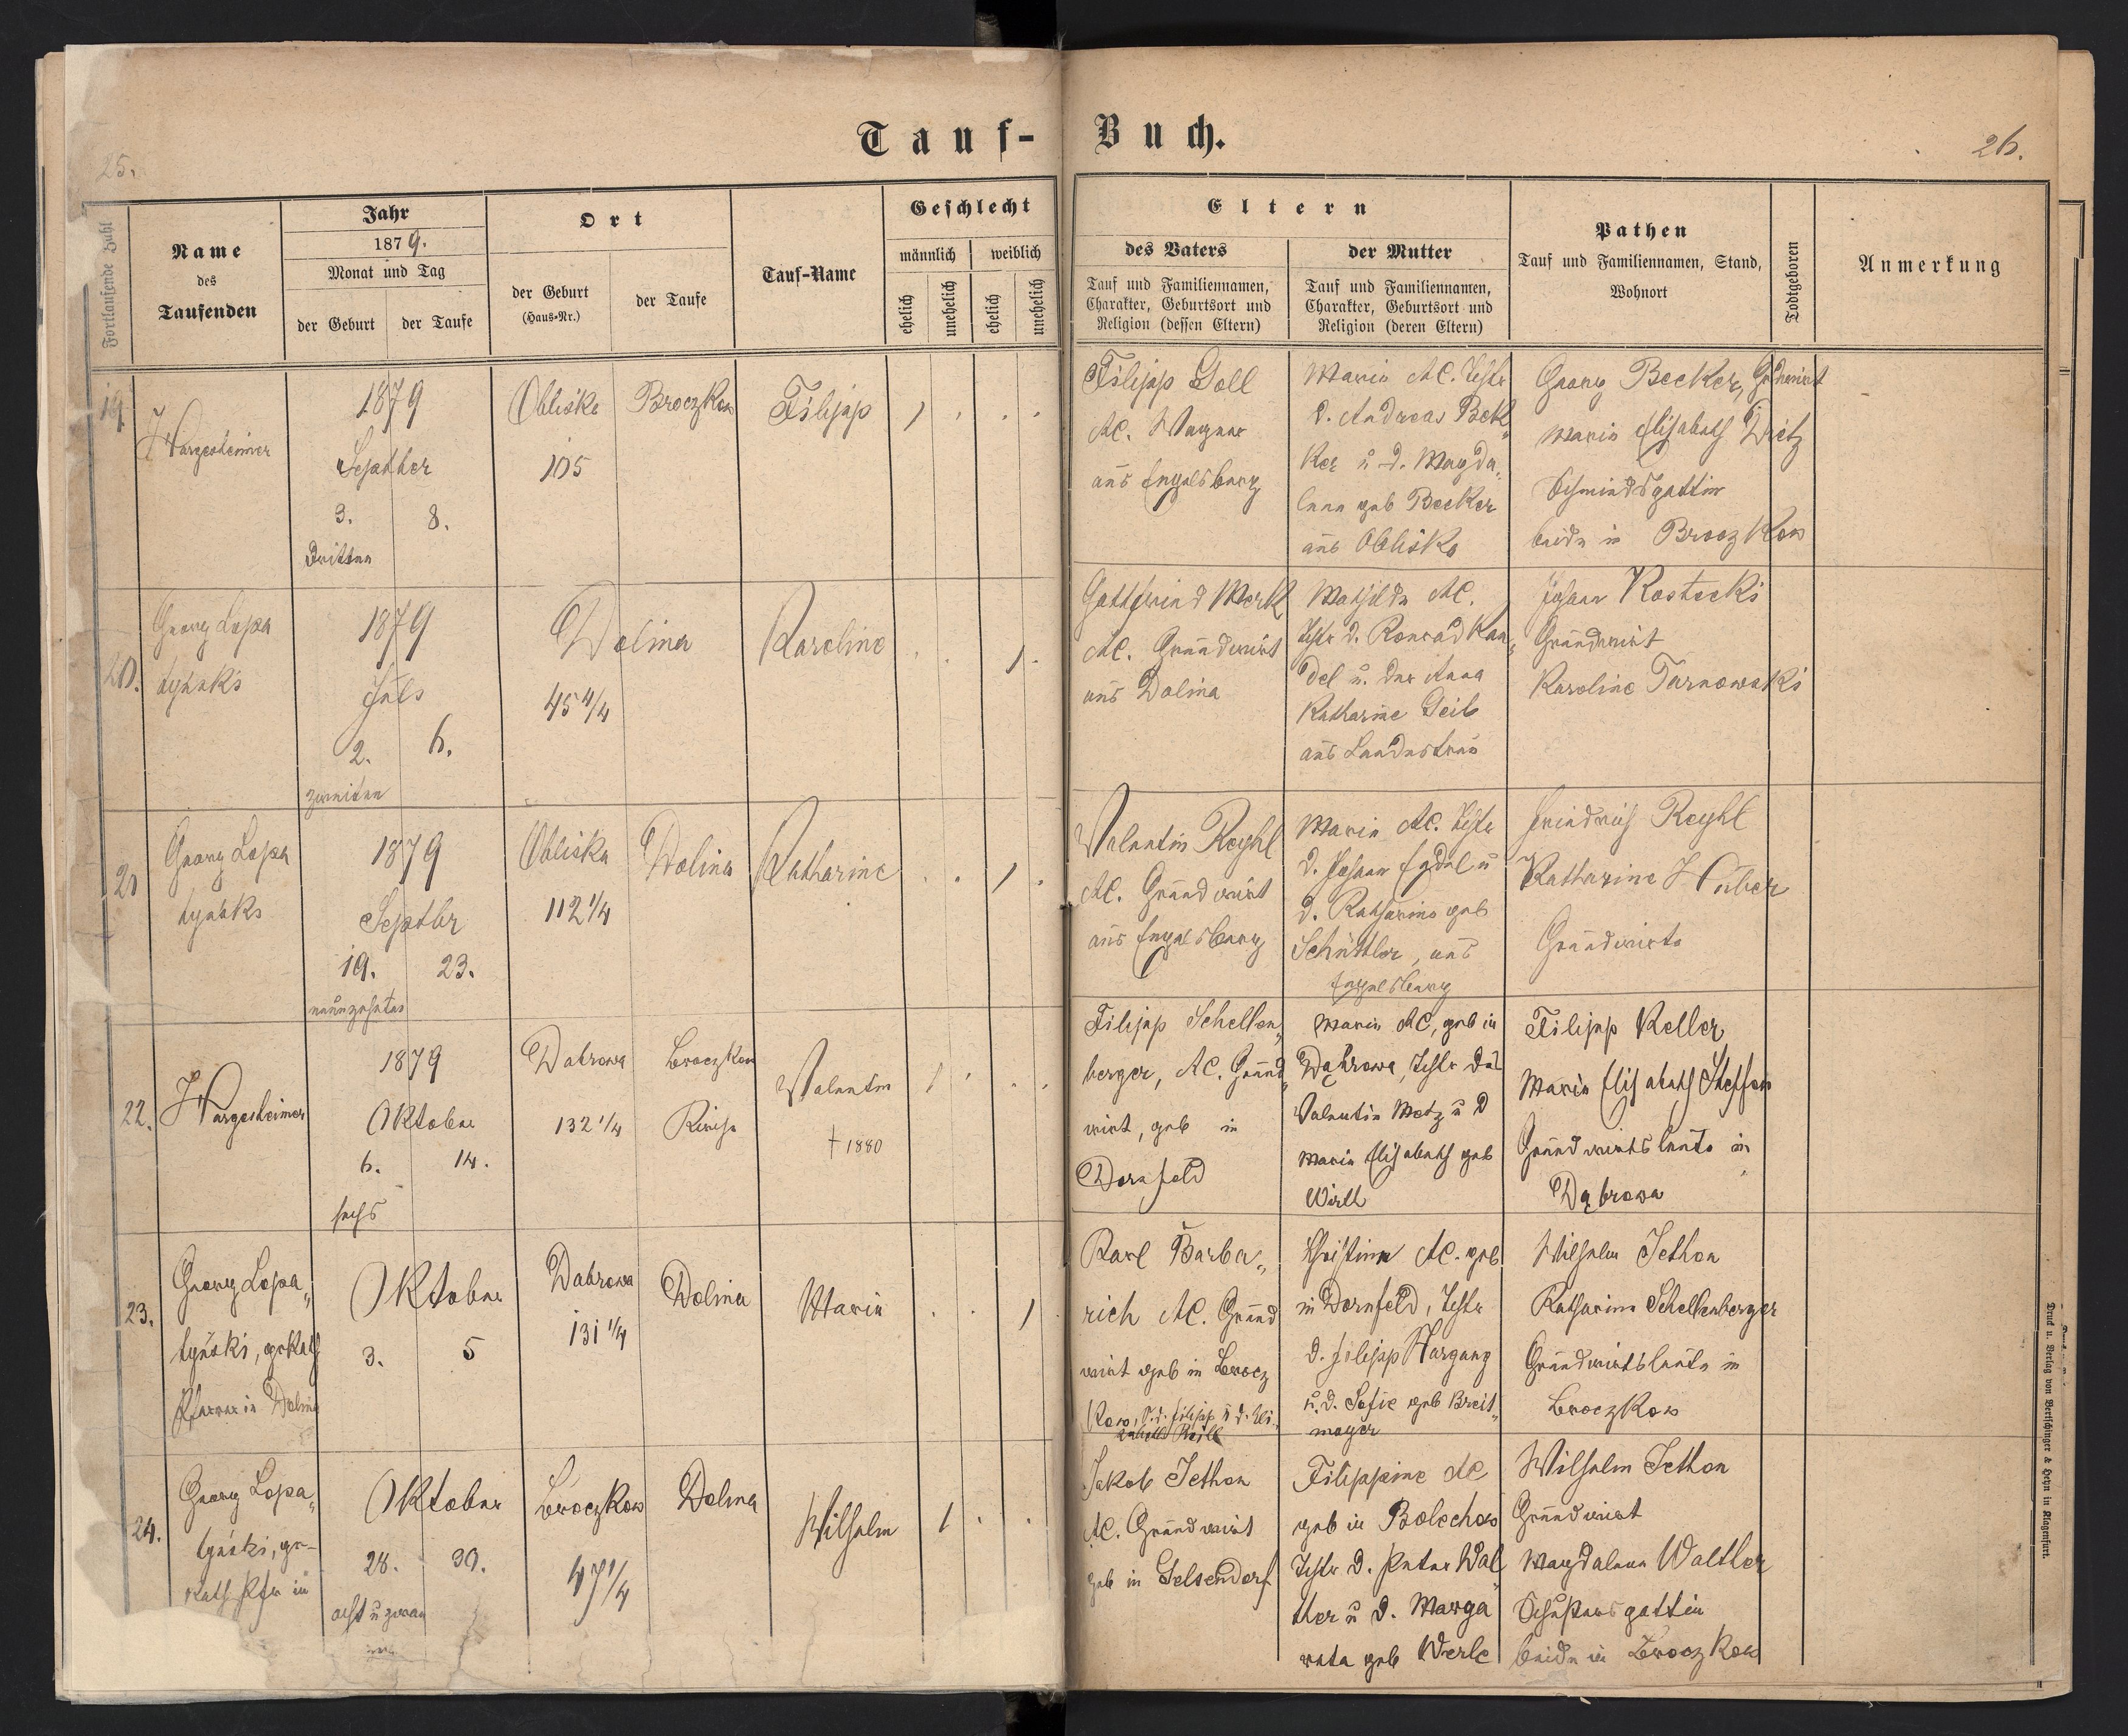 Tauf-Buch.
25.
26.
Fortlaufende Zahl
Name
des
Taufenden
Jahr
1879.
Monat und Tag
der Geburt
der Taufe
Ort
der Geburt
(Haus-Nr.)
der Taufe
Tauf-Name
Geschlecht
männlich
weiblich
ehelich
unehelich
ehelich
unehelich
Eltern
des Vaters
Tauf und Familiennamen,
Charakter, Geburtsort und
Religion (dessen Eltern)
der Mutter
Tauf und Familiennamen,
Charakter, Geburtsort und
Religion (deren Eltern)
Pathen
Tauf und Familiennamen, Stand,
Wohnort
Todtgeboren
Anmerkung
19.
Hargesheimer
1879
Septber
3.
8.
Dritten
Obliska
105
Broczkow
Filipp
1 . . .
Filipp Doll
AC. Wagner
aus Engelsberg
Maria AC. Tchtr
d. Andreas Bek„
ker u d. Magda„
lena geb Becker
aus Obliska
Georg Becker, Grdwirt
Maria Elisabeth Dietz
Schmiedsgattin
beide in Broczkow
20.
Georg Lopa
tyński
1879
Juli
2.
6.
zweiten
Dolina
45 4/4
Karoline
. . 1 .
Gottfried Merk
AC. Grundwirt
aus Dolina
Mathilde AC.
Tchtr d. Konrad Kan„
del u. der Anna
Katharine Geib
aus Landestreu
Johann Kostecki
Grundwirt
Karoline Tarnowski
21
Georg Lopa
tyński
1879
Septbr
19.
23.
neunzehnten
Obliska
112 1/4
Dolina
Katharine
. . 1 .
Valentin Reyhl
AC. Grundwirt
aus Engelsberg
Maria AC. Tchtr
d. Johann Egdel u
d. Katharina geb
Schüttler, aus
Engelsberg
Friedrich Reyhl
Katharine Huber
Grundwirte
22.
Hargesheimer
1879
Oktober
6.
14.
sechs
Dabrowa
132 1/4
Broczkow
Kirche
Valentin
† 1880
1 . . .
Filipp Schellen„
berger, AC. Grund„
wirt, geb in
Dornfeld
Maria AC, geb in
Dąbrowa, Tchtr des
Valentin Metz u d
Maria Elisabeth geb
Wirth
Filipp Keller
Maria Elisabeth Steffen
Grundwirtsleute in
Dąbrowa
23.
Georg Lopa„
tyński, grkath
Pfarrer in Dolina
Oktober
3.
5
Dabrowa
131 1/4
Dolina
Maria
. . 1
Karl Barba„
rich AC. Grund
wirt geb in Brocz
kow, S. d. Filipp u d. Eli„
Christine AC. geb
in Dornfeld, Tchtr
d. Filipp Hargang
u. d. Sofie geb Breit„
mayer
Wilhelm Jethon
Katharina Schellenberger
Grundwirtsleute in
Broczkow
24.
Georg Lopa„
tyński, gr-
kath Pfr in
Oktober
28.
30.
acht u zwan
Broczkow
47 1/4
Dolina
Wilhelm
1 . .
Jakob Jethon
AC. Grundwirt
geb in Gelsendorf
Filippine AC
geb in Bolechow
Tchtr d. Peter Wal
ther u d. Marga
reta geb Werle
Wilhelm Jethon
Grundwirt
Magdalena Walther
Schustersgattin
beide in Broczkow
Druck u. Verlag von Bertschinger & Heyn in Klagenfurt.